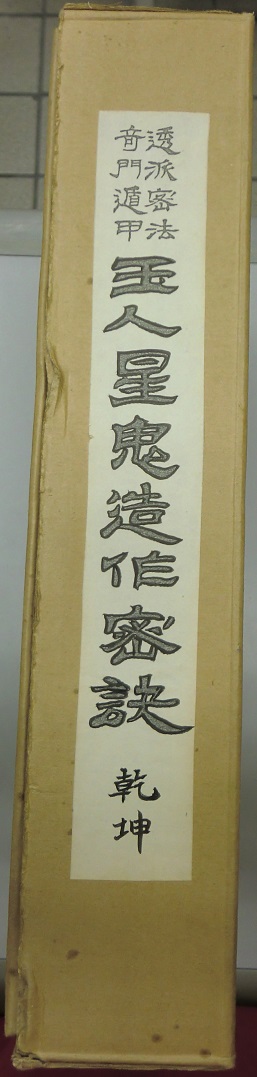 透派密法
奇門遁甲
玉人星鬼造作密訣
乾坤